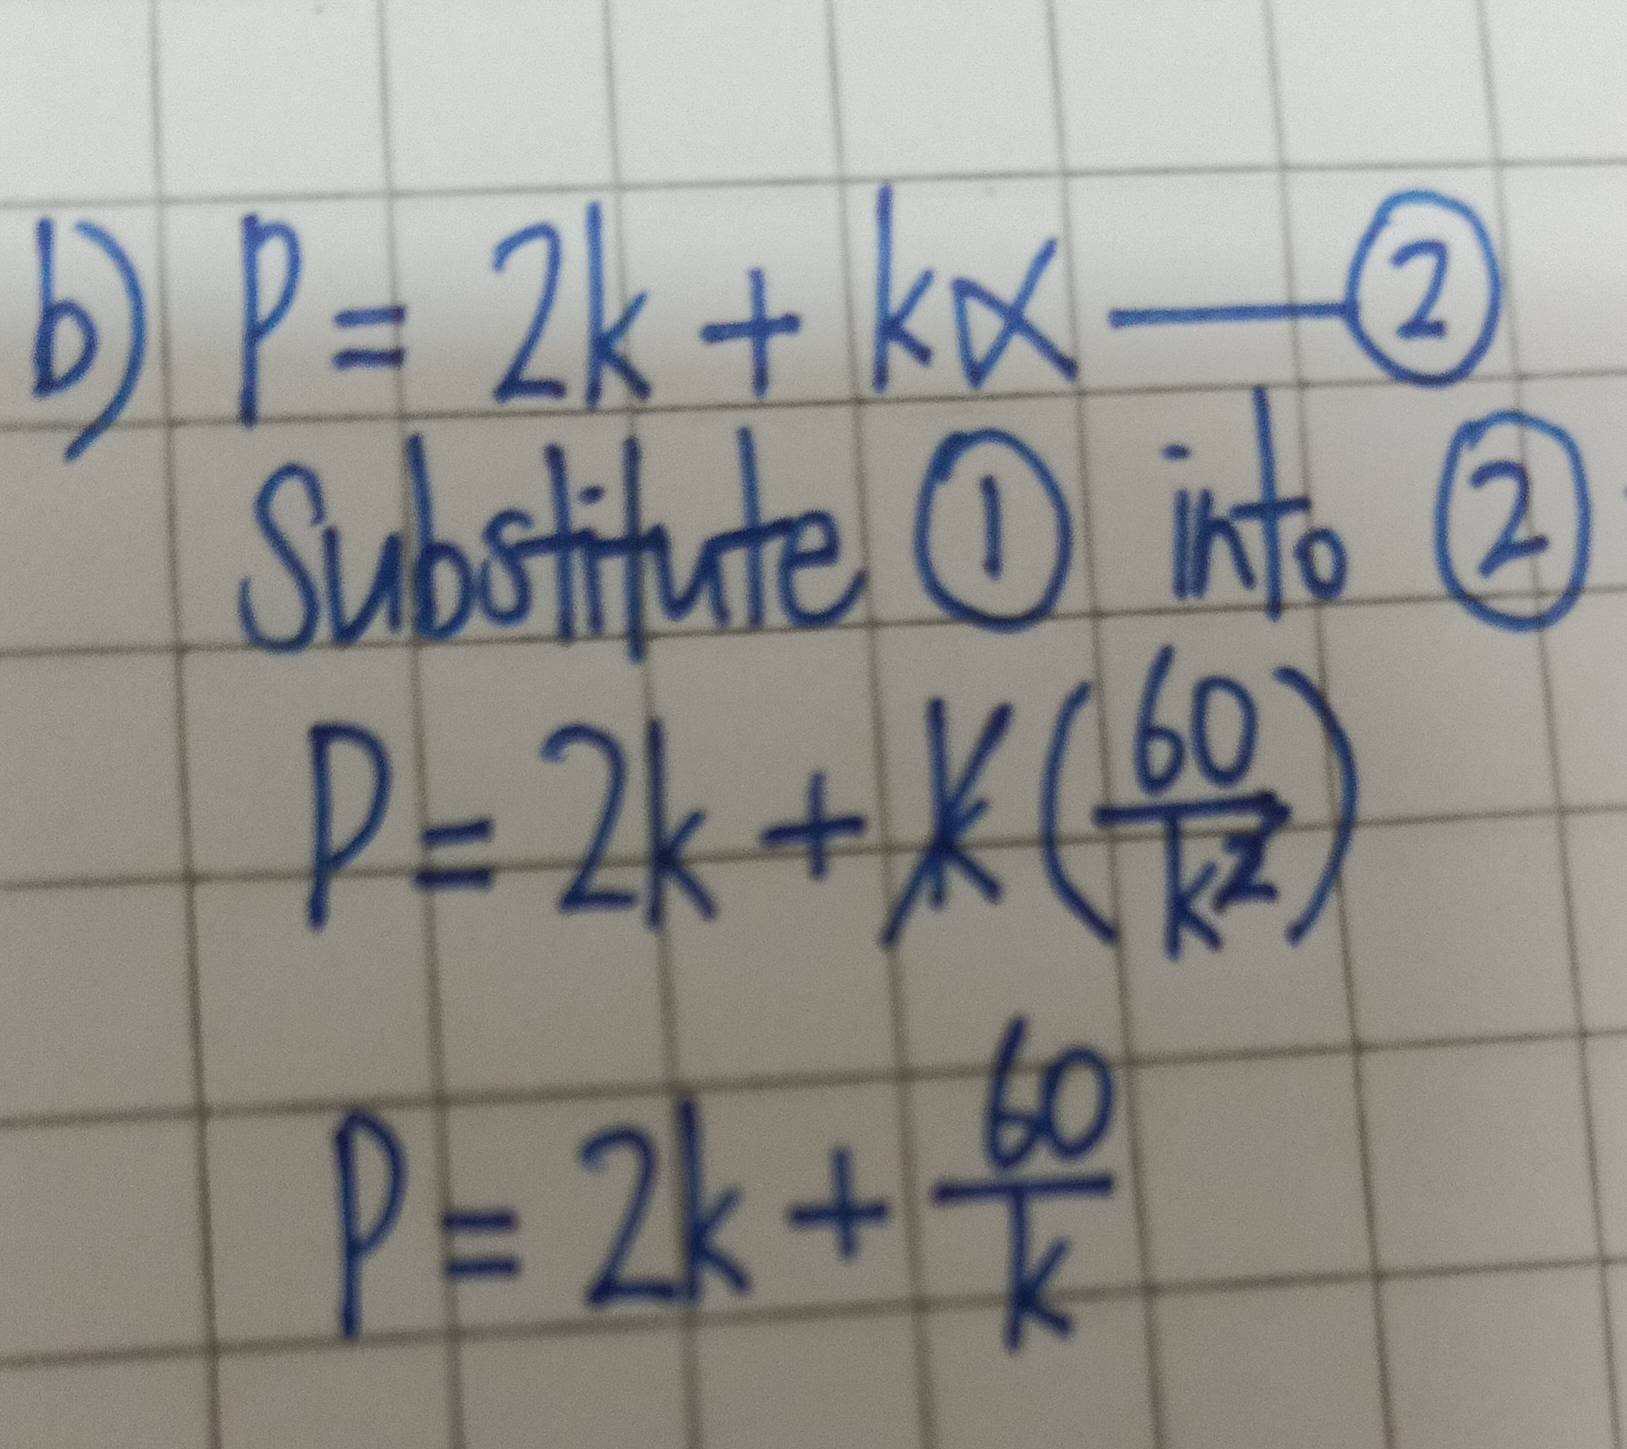 b) P = 2k + kα — ②
Substitute ① into ②
P = 2k + k(60/k²)
P = 2k + 60/k